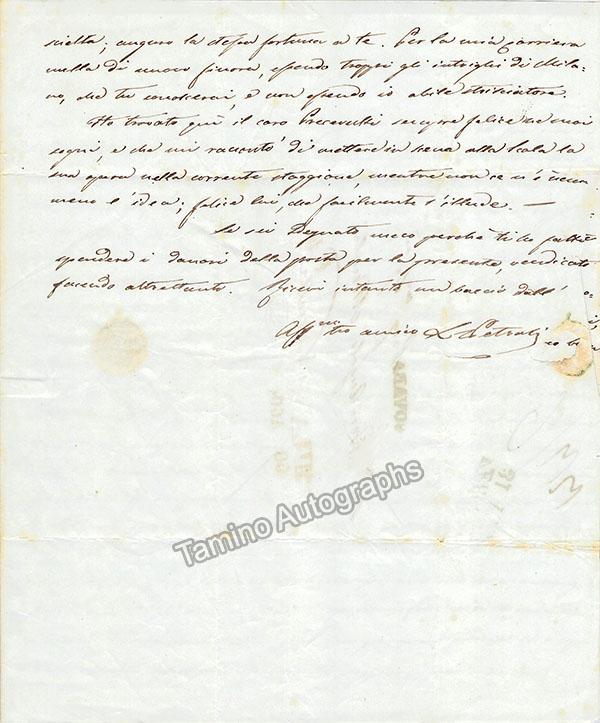 scielta; auguro la stessa fortuna a te. Per la mia carriera
nulla di nuovo finora, essendo troppi gli intrighi di Mila=
no, che tu conoscerai, e non essendo io abile strisciatore.
Ho trovato quì il caro sempre felice ne suoi
sogni, e che mi raccontò di mettere in scena alla Scala la
sua opera nella corrente staggione, mentre non ce n'è nem
meno l'idea; felice lui, che facilmente s'illude. —
Se sei Degnato meco perchè ti ho fatto
spendere i danari della posta per la presente, vendicati
facendo altrettanto. Ricevi intanto un baccio dall'
Aff.mo tuo amico L Petrali
NOVARA
Tamino Autographs